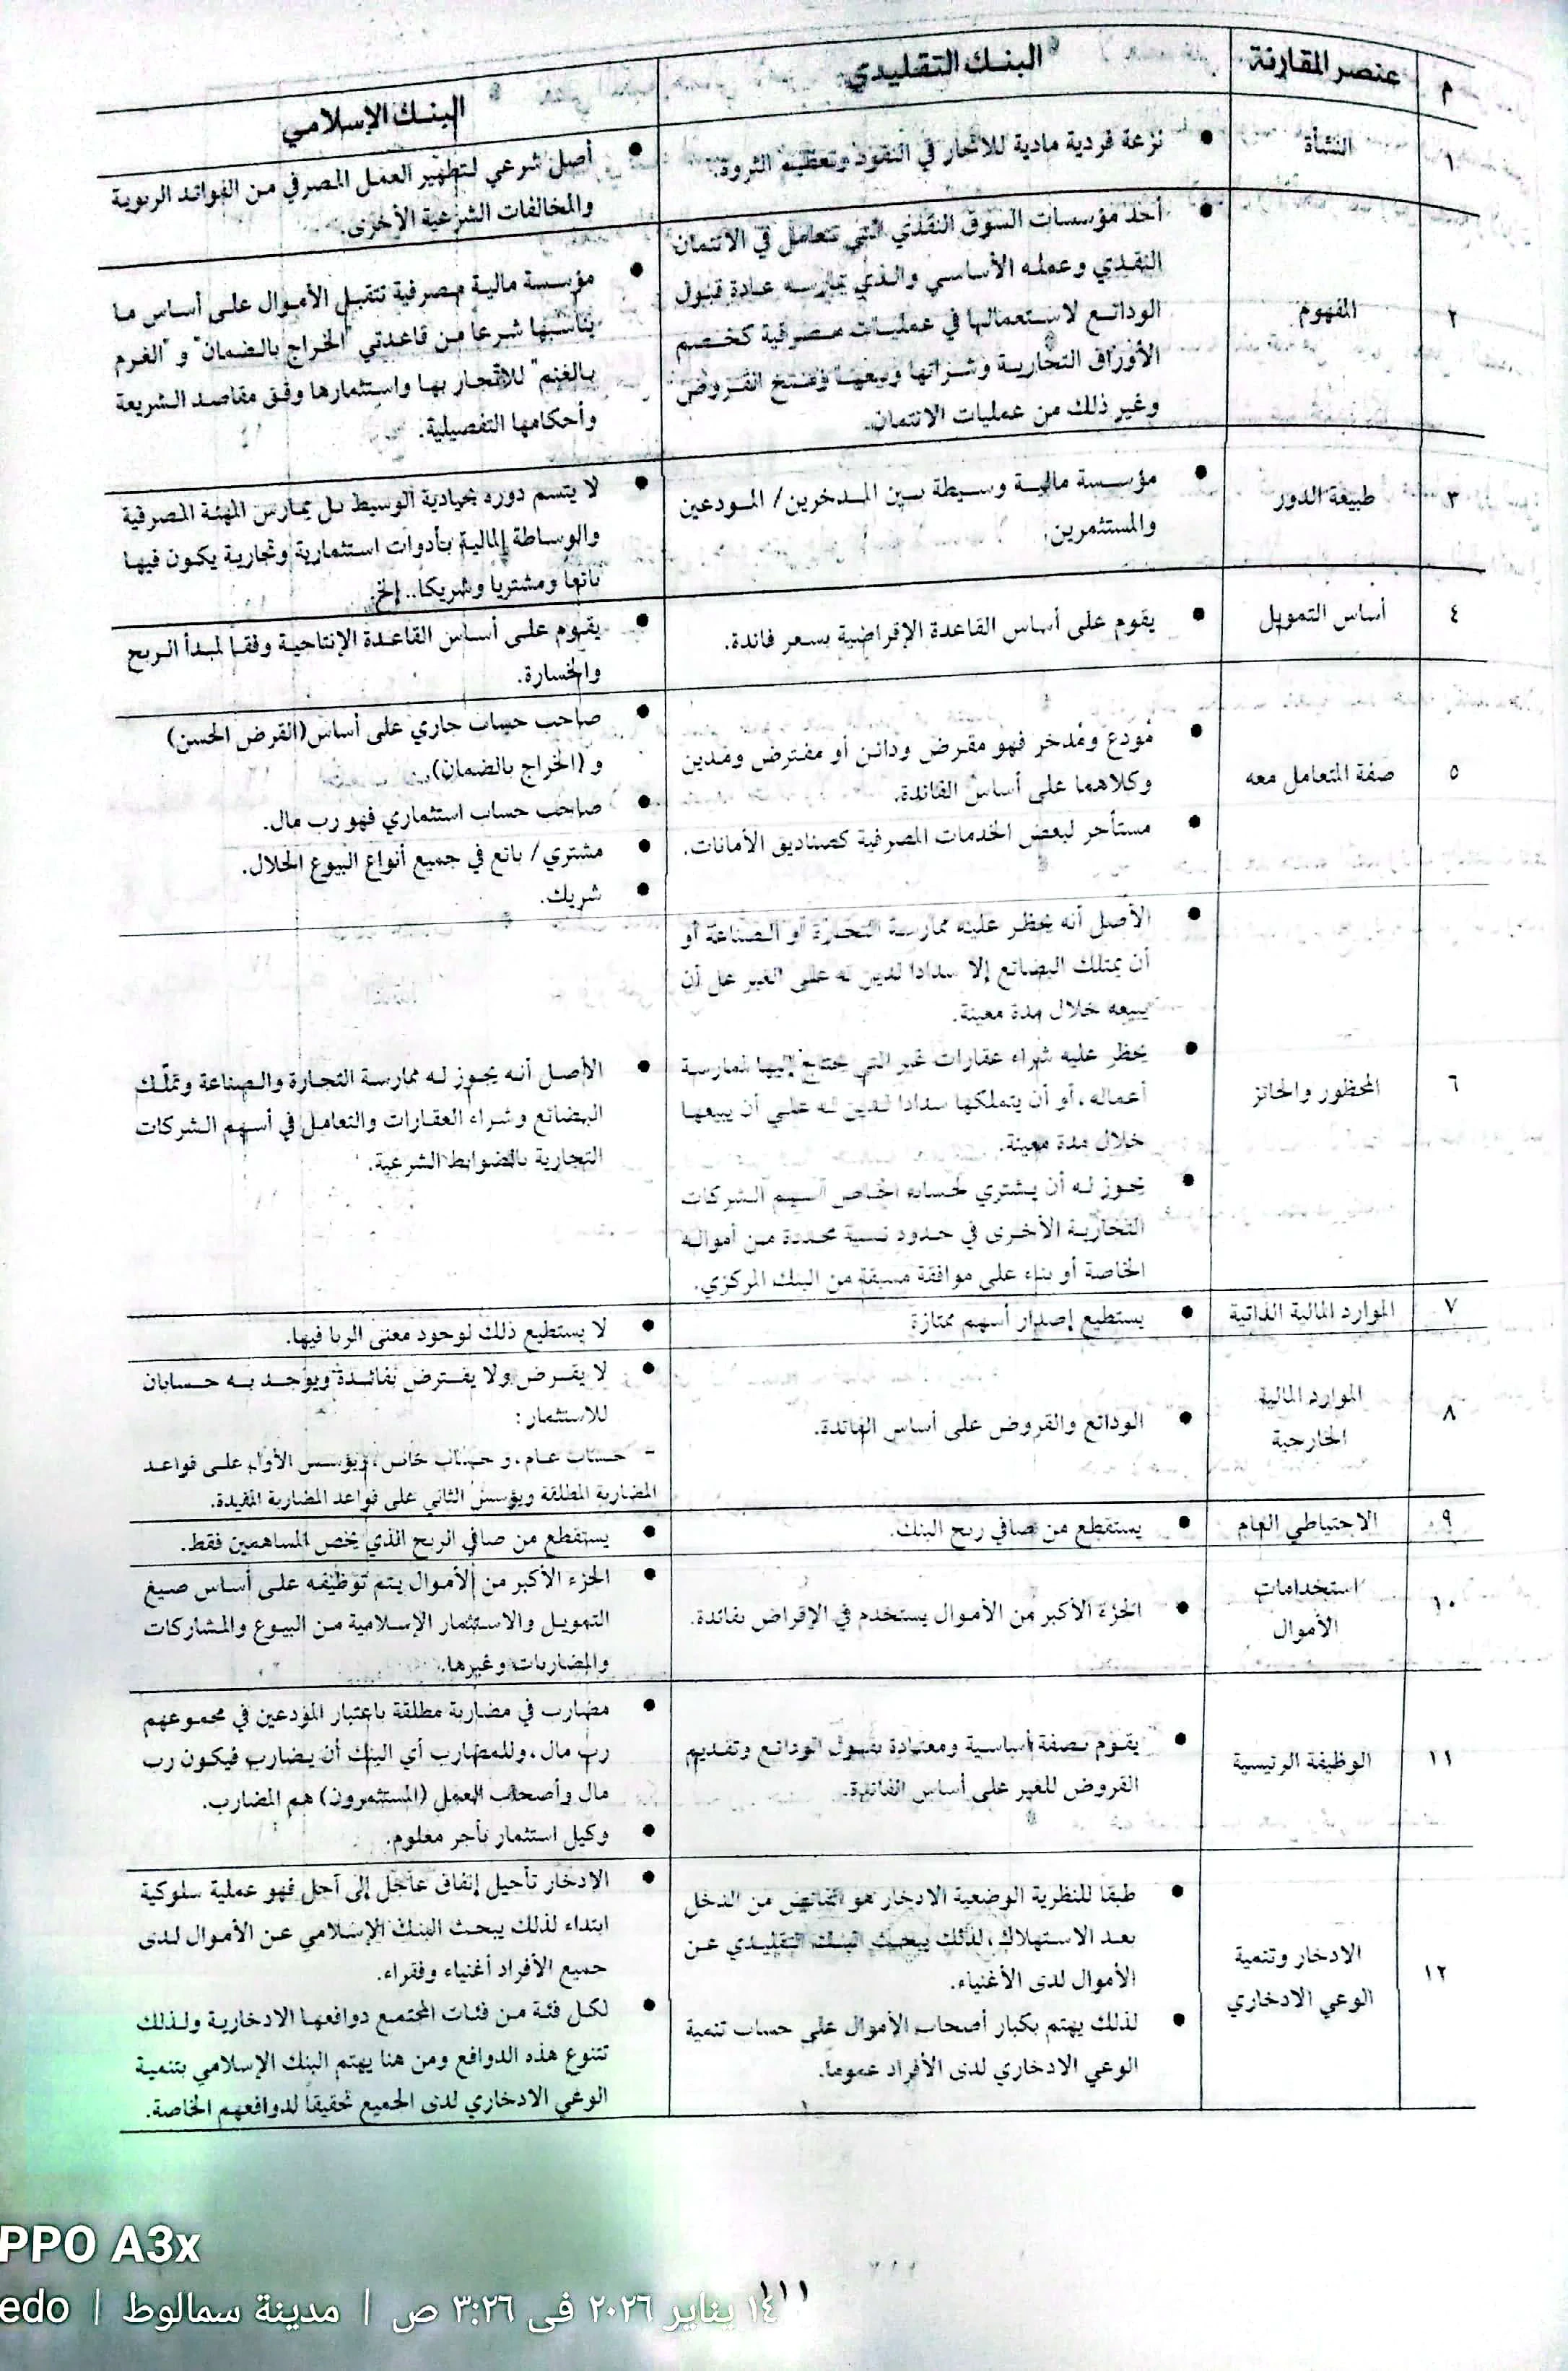 م
عنصر المقارنة
البنك التقليدي
البنك الإسلامي
١
النشأة
• نزعة فردية مادية للاتجار في النقود وتعظيم الثروة.
• أصل شرعي لتطهير العمل المصرفي من الفوائد الربوية
والمخالفات الشرعية الأخرى.
٢
المفهوم
• أحد مؤسسات السوق النقدي التي تتعامل في الائتمان
النقدي وعمله الأساسي والذي يمارسه عادة قبول
الودائع لاستعمالها في عمليات مصرفية كخصم
الأوراق التجارية وشرائها وبيعها ومنح القروض
وغير ذلك من عمليات الائتمان.
• مؤسسة مالية مصرفية تتقبل الأموال على أساس ما
يناسبها شرعا من قاعدتي "الخراج بالضمان" و "الغرم
بالغنم" للاتجار بها واستثمارها وفق مقاصد الشريعة
وأحكامها التفصيلية.
٣
طبيعة الدور
• مؤسسة مالية وسيطة بين المدخرين/ المودعين
والمستثمرين.
• لا يتسم دوره بحيادية الوسيط بل يمارس المهنة المصرفية
والوساطة المالية بأدوات استثمارية وتجارية يكون فيها
بائعا ومشتريا وشريكا.. إلخ.
٤
أساس التمويل
• يقوم على أساس القاعدة الإقراضية بسعر فائدة.
• يقوم على أساس القاعدة الإنتاجية وفقا لمبدأ الربح
والخسارة.
٥
صفة المتعامل معه
• مُودع ومُدخر فهو مقرض ودائن أو مقترض ومدين
وكلاهما على أساس الفائدة.
• مستأجر لبعض الخدمات المصرفية كصناديق الأمانات.
• صاحب حساب جاري على أساس(القرض الحسن)
و (الخراج بالضمان).
• صاحب حساب استثماري فهو رب مال.
• مشتري/ بائع في جميع أنواع البيوع الحلال.
• شريك.
٦
المحظور والجائز
• الأصل أنه يحظر عليه ممارسة التجارة أو الصناعة أو
أن يمتلك البضائع إلا سدادا لدين له على الغير على أن
يبيعه خلال مدة معينة.
• يحظر عليه شراء عقارات غير التي يحتاج إليها لممارسة
أعماله، أو أن يتملكها سدادا لدين له على أن يبيعها
خلال مدة معينة.
• يجوز له أن يشتري لحسابه الخاص أسهم الشركات
التجارية الأخرى في حدود نسبة محددة من أمواله
الخاصة أو بناء على موافقة مسبقة من البنك المركزي.
• الأصل أنه يجوز له ممارسة التجارة والصناعة وتملّك
البضائع وشراء العقارات والتعامل في أسهم الشركات
التجارية بالضوابط الشرعية.
٧
الموارد المالية الذاتية
• يستطيع إصدار أسهم ممتازة
• لا يستطيع ذلك لوجود معنى الربا فيها.
٨
الموارد المالية
الخارجية
• الودائع والقروض على أساس الفائدة.
• لا يقرض ولا يقترض بفائدة ويوجد به حسابان
للاستثمار:
- حساب عام، و حساب خاص، ويؤسس الأول على قواعد
المضاربة المطلقة ويؤسس الثاني على قواعد المضاربة المقيدة.
٩
الاحتياطي العام
• يستقطع من صافي ربح البنك.
• يستقطع من صافي الربح الذي يخص المساهمين فقط.
١٠
استخدامات
الأموال
• الجزء الأكبر من الأموال يستخدم في الإقراض بفائدة.
• الجزء الأكبر من الأموال يتم توظيفه على أساس صيغ
التمويل والاستثمار الإسلامية من البيوع والمشاركات
والمضاربات وغيرها.
١١
الوظيفة الرئيسية
• يقوم بصفة أساسية ومعتادة بقبول الودائع وتقديم
القروض للغير على أساس الفائدة.
• مضارب في مضاربة مطلقة باعتبار المودعين في مجموعهم
رب مال، وللمضارب أي البنك أن يضارب فيكون رب
مال وأصحاب العمل (المستثمرون) هم المضارب.
• وكيل استثمار بأجر معلوم.
١٢
الادخار وتنمية
الوعي الادخاري
• طبقا للنظرية الوضعية الادخار هو الفائض من الدخل
بعد الاستهلاك، لذلك يبحث البنك التقليدي عن
الأموال لدى الأغنياء.
• لذلك يهتم بكبار أصحاب الأموال على حساب تنمية
الوعي الادخاري لدى الأفراد عموما.
• الادخار تأجيل إنفاق عاجل إلى آجل فهو عملية سلوكية
ابتداء لذلك يبحث البنك الإسلامي عن الأموال لدى
جميع الأفراد أغنياء وفقراء.
• لكل فئة من فئات المجتمع دوافعها الادخارية ولذلك
تتنوع هذه الدوافع ومن هنا يهتم البنك الإسلامي بتنمية
الوعي الادخاري لدى الجميع تحقيقا لدوافعهم الخاصة.
١١١
PPO A3x
edo | ١٤ يناير ٢٠٢٦ فى ٣:٢٦ ص | مدينة سمالوط